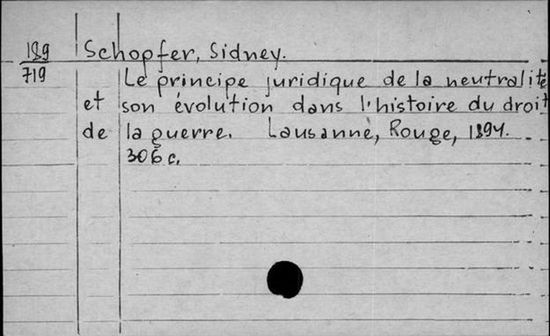 189 Schopfer, Sidney.
719 Le principe juridique de la neutralité
et son évolution dans l'histoire du droit
de la guerre. Lausanne, Rouge, 1894.
306 c.